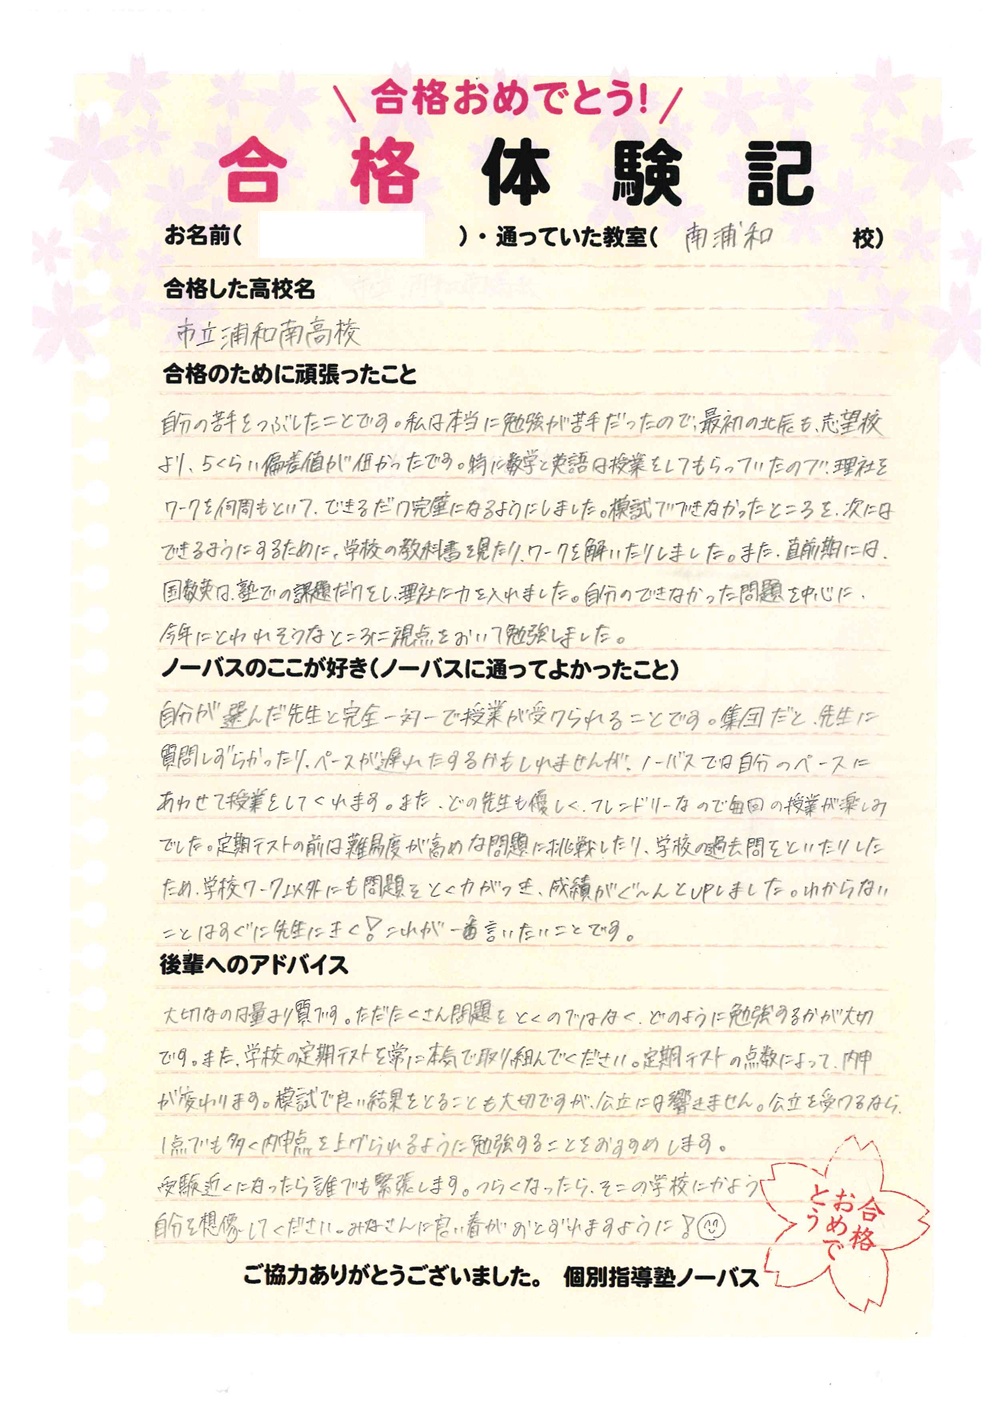 合格おめでとう!
合格体験記
お名前( )・通っていた教室( 南浦和 校)
合格した高校名
市立浦和南高校
合格のために頑張ったこと
自分の苦手をつぶしたことです。私は本当に勉強が苦手だったので、最初の北辰も、志望校
より、5くらい偏差値が低かったです。特に数学と英語は授業をしてもらっていたので、理社を
ワークを何周もといて、できるだけ完璧になるようにしました。模試でできなかったところを、次には
できるようにするために、学校の教科書を見たり、ワークを解いたりしました。また、直前期には、
国数英は、塾での課題だけをし、理社に力を入れました。自分のできなかった問題を中心に、
今年にとわれそうなところに視点をおいて勉強しました。
ノーバスのここが好き(ノーバスに通ってよかったこと)
自分が選んだ先生と完全一対一で授業が受けられることです。集団だと、先生に
質問しずらかったり、ペースが遅れたするかもしれませんが、ノーバスでは自分のペースに
あわせて授業をしてくれます。また、どの先生も優しく、フレンドリーなので毎回の授業が楽しみ
でした。定期テストの前は難易度が高めな問題に挑戦したり、学校の過去問をといたりした
ため、学校ワーク以外にも問題をとく力がつき、成績がぐ〜んとUPしました。わからない
ことはすぐに先生にきく!これが一番言いたいことです。
後輩へのアドバイス
大切なのは量より質です。ただたくさん問題をとくのではなく、どのように勉強するかが大切
です。また、学校の定期テストを常に本気で取り組んでください。定期テストの点数によって、内申
が変わります。模試で良い結果をとることも大切ですが、公立には響きません。公立を受けるなら、
1点でも多く内申点を上げられるように勉強することをおすすめします。
受験近くになったら誰でも緊張します。つらくなったら、そこの学校にかよう
自分を想像してください。みなさんに良い春がおとずれますように!
合格
おめで
とう
ご協力ありがとうございました。 個別指導塾ノーバス